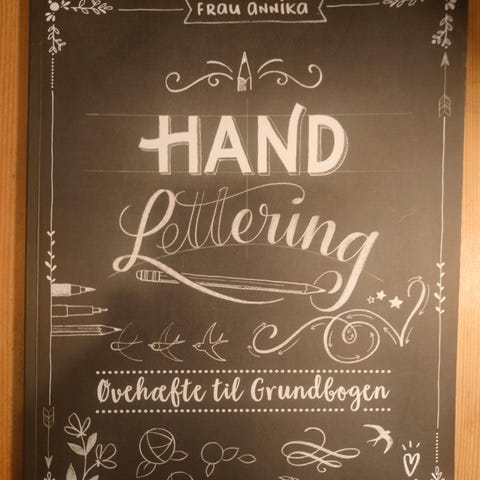 FRAU ANNIKA
HAND
Lettering
Øvehæfte til Grundbogen